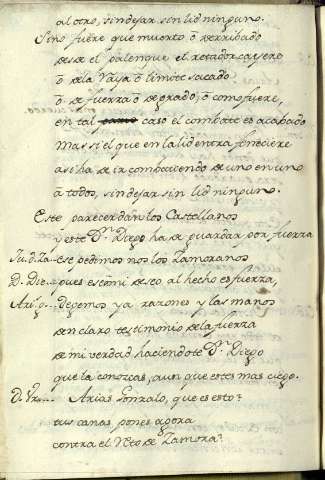 al otro, sin dejar sin lid ninguno.
Sino fuere que muerto o derribado
desde el palenque el retador cayere
o dela raya o limite sacado
o de fuerza o de grado, o como fuere,
en tal caso el combate es acabado
Mas si el que en la lid entra feneciere
asi ha de ir combatiendo de uno en uno
a todos, sin dejar sin lid ninguno.
Este parecer dan los Castellanos
y este Dn. Diego ha de guardar por fuerza
Ese pedimos nos los Zamoranos
D. Die. pues es como deseo al hecho es fuerza,
Ari. dejemos ya razones y las manos
den claro testimonio de la fuerza
de mi verdad haciendote Dn. Diego
que la conozcas, aun que estes mas ciego.
Arias Gonzalo, que es esto?
tus canas pones agora
contra el Reto de Zamora?